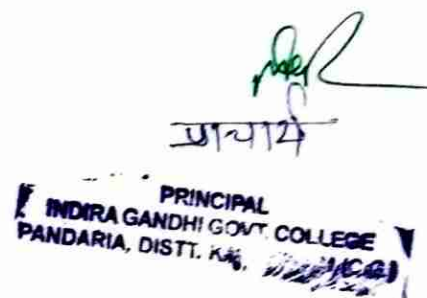 प्राचार्य
PRINCIPAL
INDIRA GANDHI GOVT. COLLEGE
PANDARIA, DISTT. (C.G)